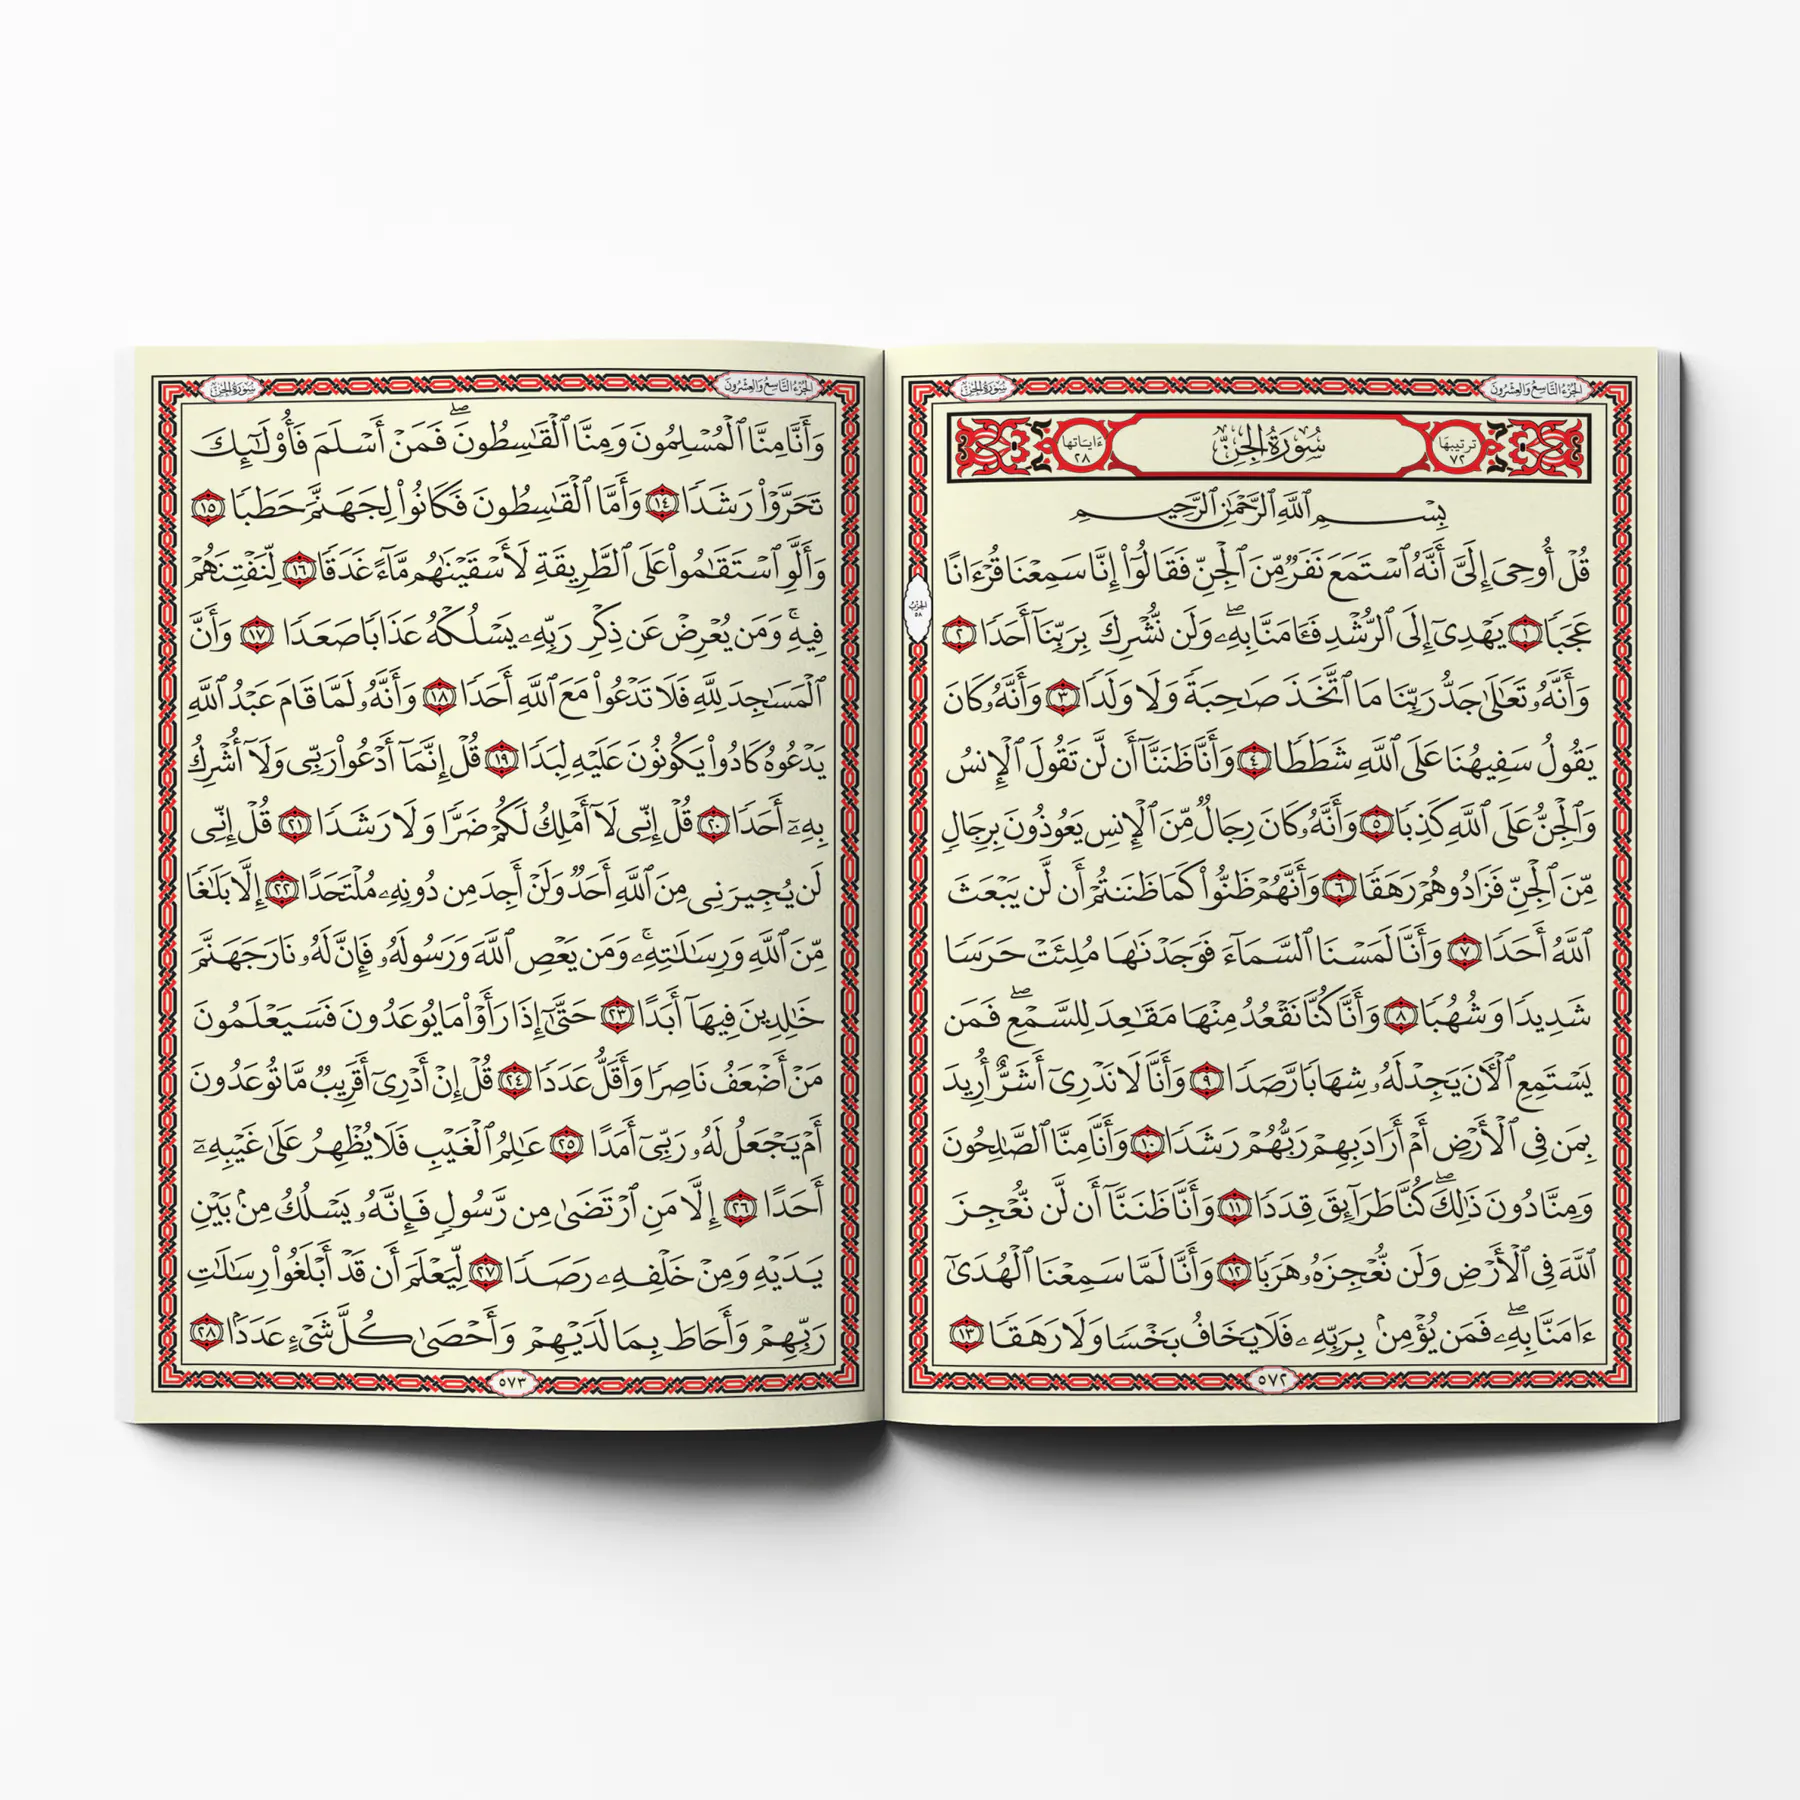 الجزء التاسع والعشرون
سورة الجن
ترتيبها ٧٢
سُورَةُ الجِنِّ
ءاياتها ٢٨
بِسْمِ ٱللَّهِ ٱلرَّحْمَٰنِ ٱلرَّحِيمِ
قُلْ أُوحِىَ إِلَىَّ أَنَّهُ ٱسْتَمَعَ نَفَرٌ مِّنَ ٱلْجِنِّ فَقَالُوٓا۟ إِنَّا سَمِعْنَا قُرْءَانًا
عَجَبًا ١ يَهْدِىٓ إِلَى ٱلرُّشْدِ فَـَٔامَنَّا بِهِۦ ۖ وَلَن نُّشْرِكَ بِرَبِّنَآ أَحَدًا ٢
وَأَنَّهُۥ تَعَٰلَىٰ جَدُّ رَبِّنَا مَا ٱتَّخَذَ صَٰحِبَةً وَلَا وَلَدًا ٣ وَأَنَّهُۥ كَانَ
يَقُولُ سَفِيهُنَا عَلَى ٱللَّهِ شَطَطًا ٤ وَأَنَّا ظَنَنَّآ أَن لَّن تَقُولَ ٱلْإِنسُ
وَٱلْجِنُّ عَلَى ٱللَّهِ كَذِبًا ٥ وَأَنَّهُۥ كَانَ رِجَالٌ مِّنَ ٱلْإِنسِ يَعُوذُونَ بِرِجَالٍ
مِّنَ ٱلْجِنِّ فَزَادُوهُمْ رَهَقًا ٦ وَأَنَّهُمْ ظَنُّوا۟ كَمَا ظَنَنتُمْ أَن لَّن يَبْعَثَ
ٱللَّهُ أَحَدًا ٧ وَأَنَّا لَمَسْنَا ٱلسَّمَآءَ فَوَجَدْنَٰهَا مُلِئَتْ حَرَسًا
شَدِيدًا وَشُهُبًا ٨ وَأَنَّا كُنَّا نَقْعُدُ مِنْهَا مَقَٰعِدَ لِلسَّمْعِ ۖ فَمَن
يَسْتَمِعِ ٱلْـَٔانَ يَجِدْ لَهُۥ شِهَابًا رَّصَدًا ٩ وَأَنَّا لَا نَدْرِىٓ أَشَرٌّ أُرِيدَ
بِمَن فِى ٱلْأَرْضِ أَمْ أَرَادَ بِهِمْ رَبُّهُمْ رَشَدًا ١٠ وَأَنَّا مِنَّا ٱلصَّٰلِحُونَ
وَمِنَّا دُونَ ذَٰلِكَ ۖ كُنَّا طَرَآئِقَ قِدَدًا ١١ وَأَنَّا ظَنَنَّآ أَن لَّن نُّعْجِزَ
ٱللَّهَ فِى ٱلْأَرْضِ وَلَن نُّعْجِزَهُۥ هَرَبًا ١٢ وَأَنَّا لَمَّا سَمِعْنَا ٱلْهُدَىٰٓ
ءَامَنَّا بِهِۦ ۖ فَمَن يُؤْمِنۢ بِرَبِّهِۦ فَلَا يَخَافُ بَخْسًا وَلَا رَهَقًا ١٣
الحزب ٥٨
٥٧٢
الجزء التاسع والعشرون
سورة الجن
وَأَنَّا مِنَّا ٱلْمُسْلِمُونَ وَمِنَّا ٱلْقَٰسِطُونَ ۖ فَمَنْ أَسْلَمَ فَأُو۟لَٰٓئِكَ
تَحَرَّوْا۟ رَشَدًا ١٤ وَأَمَّا ٱلْقَٰسِطُونَ فَكَانُوا۟ لِجَهَنَّمَ حَطَبًا ١٥
وَأَلَّوِ ٱسْتَقَٰمُوا۟ عَلَى ٱلطَّرِيقَةِ لَأَسْقَيْنَٰهُم مَّآءً غَدَقًا ١٦ لِّنَفْتِنَهُمْ
فِيهِ ۚ وَمَن يُعْرِضْ عَن ذِكْرِ رَبِّهِۦ يَسْلُكْهُ عَذَابًا صَعَدًا ١٧ وَأَنَّ
ٱلْمَسَٰجِدَ لِلَّهِ فَلَا تَدْعُوا۟ مَعَ ٱللَّهِ أَحَدًا ١٨ وَأَنَّهُۥ لَمَّا قَامَ عَبْدُ ٱللَّهِ
يَدْعُوهُ كَادُوا۟ يَكُونُونَ عَلَيْهِ لِبَدًا ١٩ قُلْ إِنَّمَآ أَدْعُوا۟ رَبِّى وَلَآ أُشْرِكُ
بِهِۦٓ أَحَدًا ٢٠ قُلْ إِنِّى لَآ أَمْلِكُ لَكُمْ ضَرًّا وَلَا رَشَدًا ٢١ قُلْ إِنِّى
لَن يُجِيرَنِى مِنَ ٱللَّهِ أَحَدٌ وَلَنْ أَجِدَ مِن دُونِهِۦ مُلْتَحَدًا ٢٢ إِلَّا بَلَٰغًا
مِّنَ ٱللَّهِ وَرِسَٰلَٰتِهِۦ ۚ وَمَن يَعْصِ ٱللَّهَ وَرَسُولَهُۥ فَإِنَّ لَهُۥ نَارَ جَهَنَّمَ
خَٰلِدِينَ فِيهَآ أَبَدًا ٢٣ حَتَّىٰٓ إِذَا رَأَوْا۟ مَا يُوعَدُونَ فَسَيَعْلَمُونَ
مَنْ أَضْعَفُ نَاصِرًا وَأَقَلُّ عَدَدًا ٢٤ قُلْ إِنْ أَدْرِىٓ أَقَرِيبٌ مَّا تُوعَدُونَ
أَمْ يَجْعَلُ لَهُۥ رَبِّىٓ أَمَدًا ٢٥ عَٰلِمُ ٱلْغَيْبِ فَلَا يُظْهِرُ عَلَىٰ غَيْبِهِۦٓ
أَحَدًا ٢٦ إِلَّا مَنِ ٱرْتَضَىٰ مِن رَّسُولٍ فَإِنَّهُۥ يَسْلُكُ مِنۢ بَيْنِ
يَدَيْهِ وَمِنْ خَلْفِهِۦ رَصَدًا ٢٧ لِّيَعْلَمَ أَن قَدْ أَبْلَغُوا۟ رِسَٰلَٰتِ
رَبِّهِمْ وَأَحَاطَ بِمَا لَدَيْهِمْ وَأَحْصَىٰ كُلَّ شَىْءٍ عَدَدًۢا ٢٨
٥٧٣